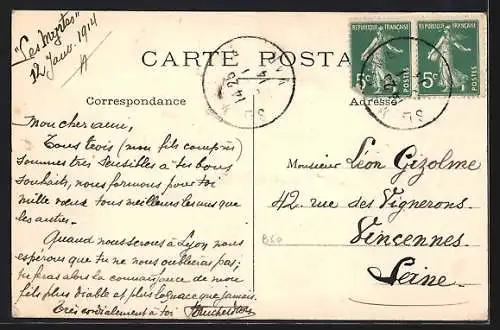 "Les Myrtes"
12 Janv. 1914
CARTE POSTA
RÉPUBLIQUE FRANÇAISE
5c POSTES
RÉPUBLIQUE FRANÇAISE
5c POSTES
Correspondance
Adresse
Mon cher ami,
Tous trois (mon fils compris)
sommes très sensibles à tes bons
souhaits, nous formons pour toi
mille vœux tous meilleurs les uns que
les autres.
Quand nous serons à Lyon nous
espérons que tu ne nous oublieras pas;
tu feras alors la connaissance de mon
fils plus diable et plus loquace que jamais.
Très cordialement à toi
Monsieur Léon Gizolme
42. rue des Vignerons.
Vincennes.
Seine.
B50